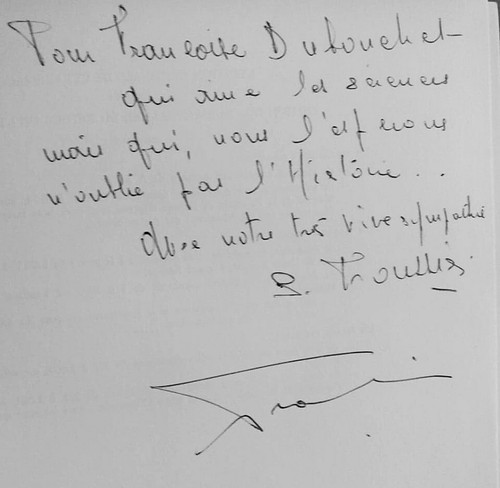 Pour Françoise Dubouchet
qui aime les sciences
mais qui, nous l'espérons
n'oublie pas l'Histoire...
avec notre très vive sympathie